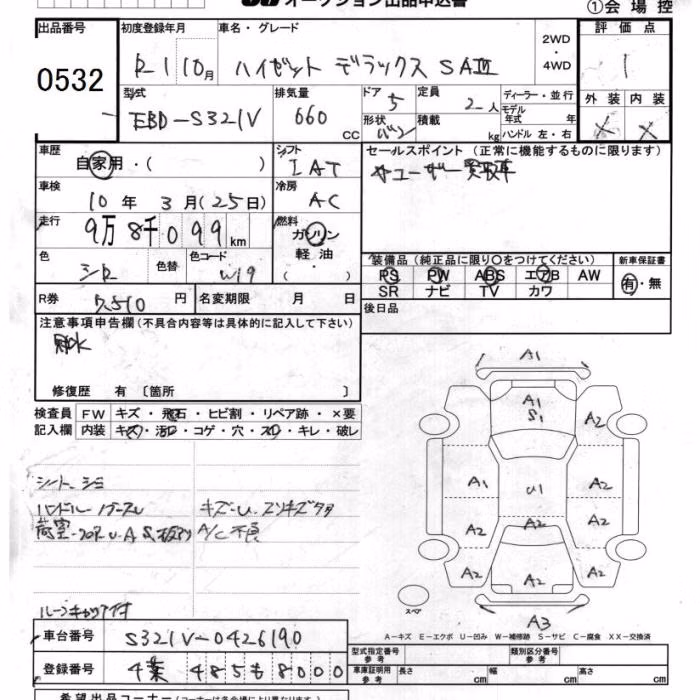 オークション出品申込書
①会場控
出品番号 初度登録年月 車名・グレード 評価点
0532 R1 10月 ハイゼット デラックス SAⅢ 2WD・4WD 1
型式 排気量 ドア 定員 ディーラー・並行 外装 内装
EBD-S321V 660 CC 5 2人 モデル年式 年
形状 バン 積載 kg ハンドル 左・右 × ×
車歴 シフト セールスポイント(正常に機能するものに限ります)
自家用・( ) IAT ☆ユーザー買取車
車検 冷房
10年 3月(25日) AC
走行 燃料
9万8千099km ガソリン
軽油
( )
色 色替 色コード
シロ W19
装備品(純正品に限り○をつけてください) 新車保証書
PS PW ABS エアB AW 有・無
SR ナビ TV カワ
R券 7,510円 名変期限 月 日 後日品
注意事項申告欄(不具合内容等は具体的に記入して下さい)
修復歴 有 〔箇所 〕
検査員 FW キズ・飛石・ヒビ割・リペア跡・×要
記入欄 内装 キズ・汚れ・コゲ・穴・スレ・キレ・破レ
A1
A1
S1
A2
A1 U1 A2
A2 A2 A2
A2 A2 A2
スペア
A3
A/C不良
ルーフキャリア付
A-キズ E-エクボ U-凹み W-補修跡 S-サビ C-腐食 XX-交換済
車台番号 S321V-0426190
登録番号 485 も 8000
型式指定番号 参考 類別区分番号 参考
車庫証明用 参考 長さ cm 幅 cm 高さ cm
希望出品コーナー